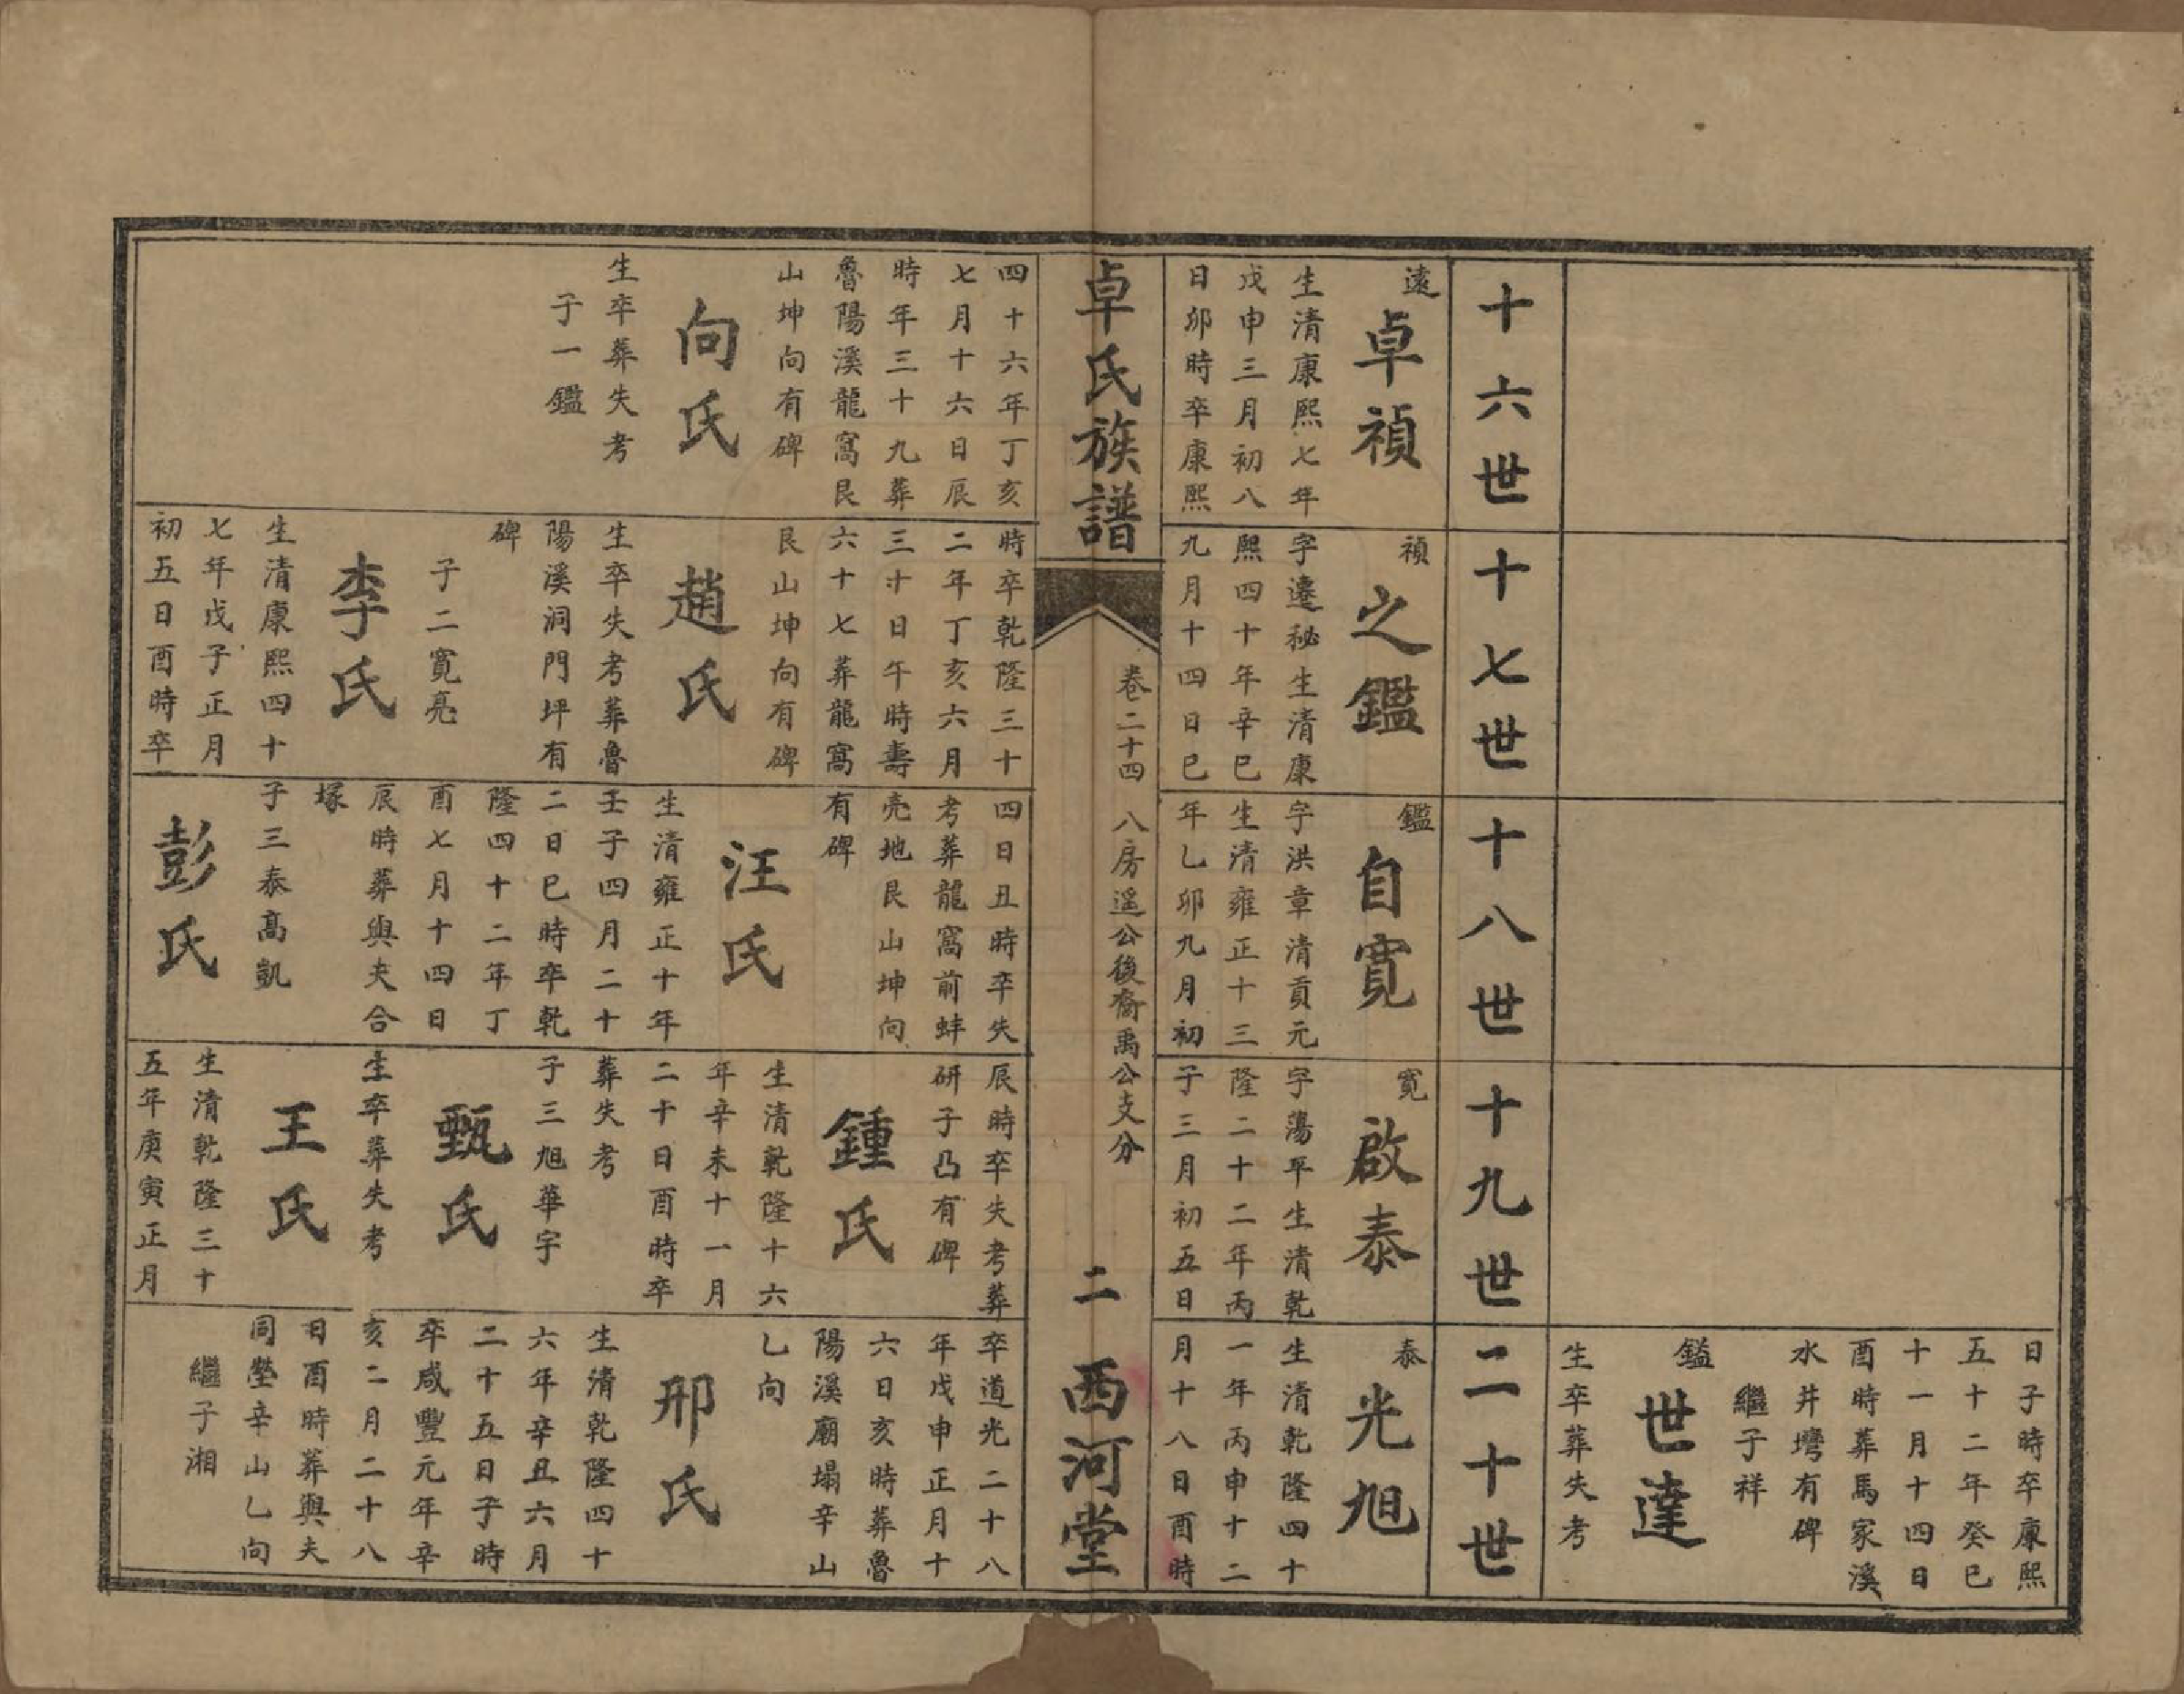 日子時卒康熙
五十二年癸巳
十一月十四日
酉時葬馬家溪
水井灣有碑
繼子祥
鎰
世達
生卒葬失考
十六世
十七世
十八世
十九世
二十世
遠
卓禎
生清康熙七年
戊申三月初八
日卯時卒康熙
禎
之鑑
字遷秘生清康
熙四十年辛巳
九月十四日巳
鑑
自寬
字洪章清貢元
生清雍正十三
年乙卯九月初
寬
啟泰
字蕩平生清乾
隆二十二年丙
子三月初五日
泰
光旭
生清乾隆四十
一年丙申十二
月十八日酉時
卓氏族譜
卷二十四
八房遥公後裔禹公支分
二
西河堂
四十六年丁亥
七月十六日辰
時年三十九葬
魯陽溪龍窩艮
山坤向有碑
向氏
生卒葬失考
子一鑑
時卒乾隆三十
二年丁亥六月
三十日午時壽
六十七葬龍窩
艮山坤向有碑
趙氏
生卒失考葬魯
陽溪洞門坪有
碑
子二寬亮
李氏
生清康熙四十
七年戊子正月
初五日酉時卒
四日丑時卒失
考葬龍窩前蚌
壳地艮山坤向
有碑
汪氏
生清雍正十年
壬子四月二十
二日巳時卒乾
隆四十二年丁
酉七月十四日
辰時葬與夫合
塚
子三泰高凱
彭氏
辰時卒失考葬
研子凸有碑
鍾氏
生清乾隆十六
年辛未十一月
二十日酉時卒
葬失考
子三旭華宇
甄氏
生卒葬失考
王氏
生清乾隆三十
五年庚寅正月
卒道光二十八
年戊申正月十
六日亥時葬魯
陽溪廟塌辛山
乙向
邢氏
生清乾隆四十
六年辛丑六月
二十五日子時
卒咸豐元年辛
亥二月二十八
日酉時葬與夫
同塋辛山乙向
繼子湘